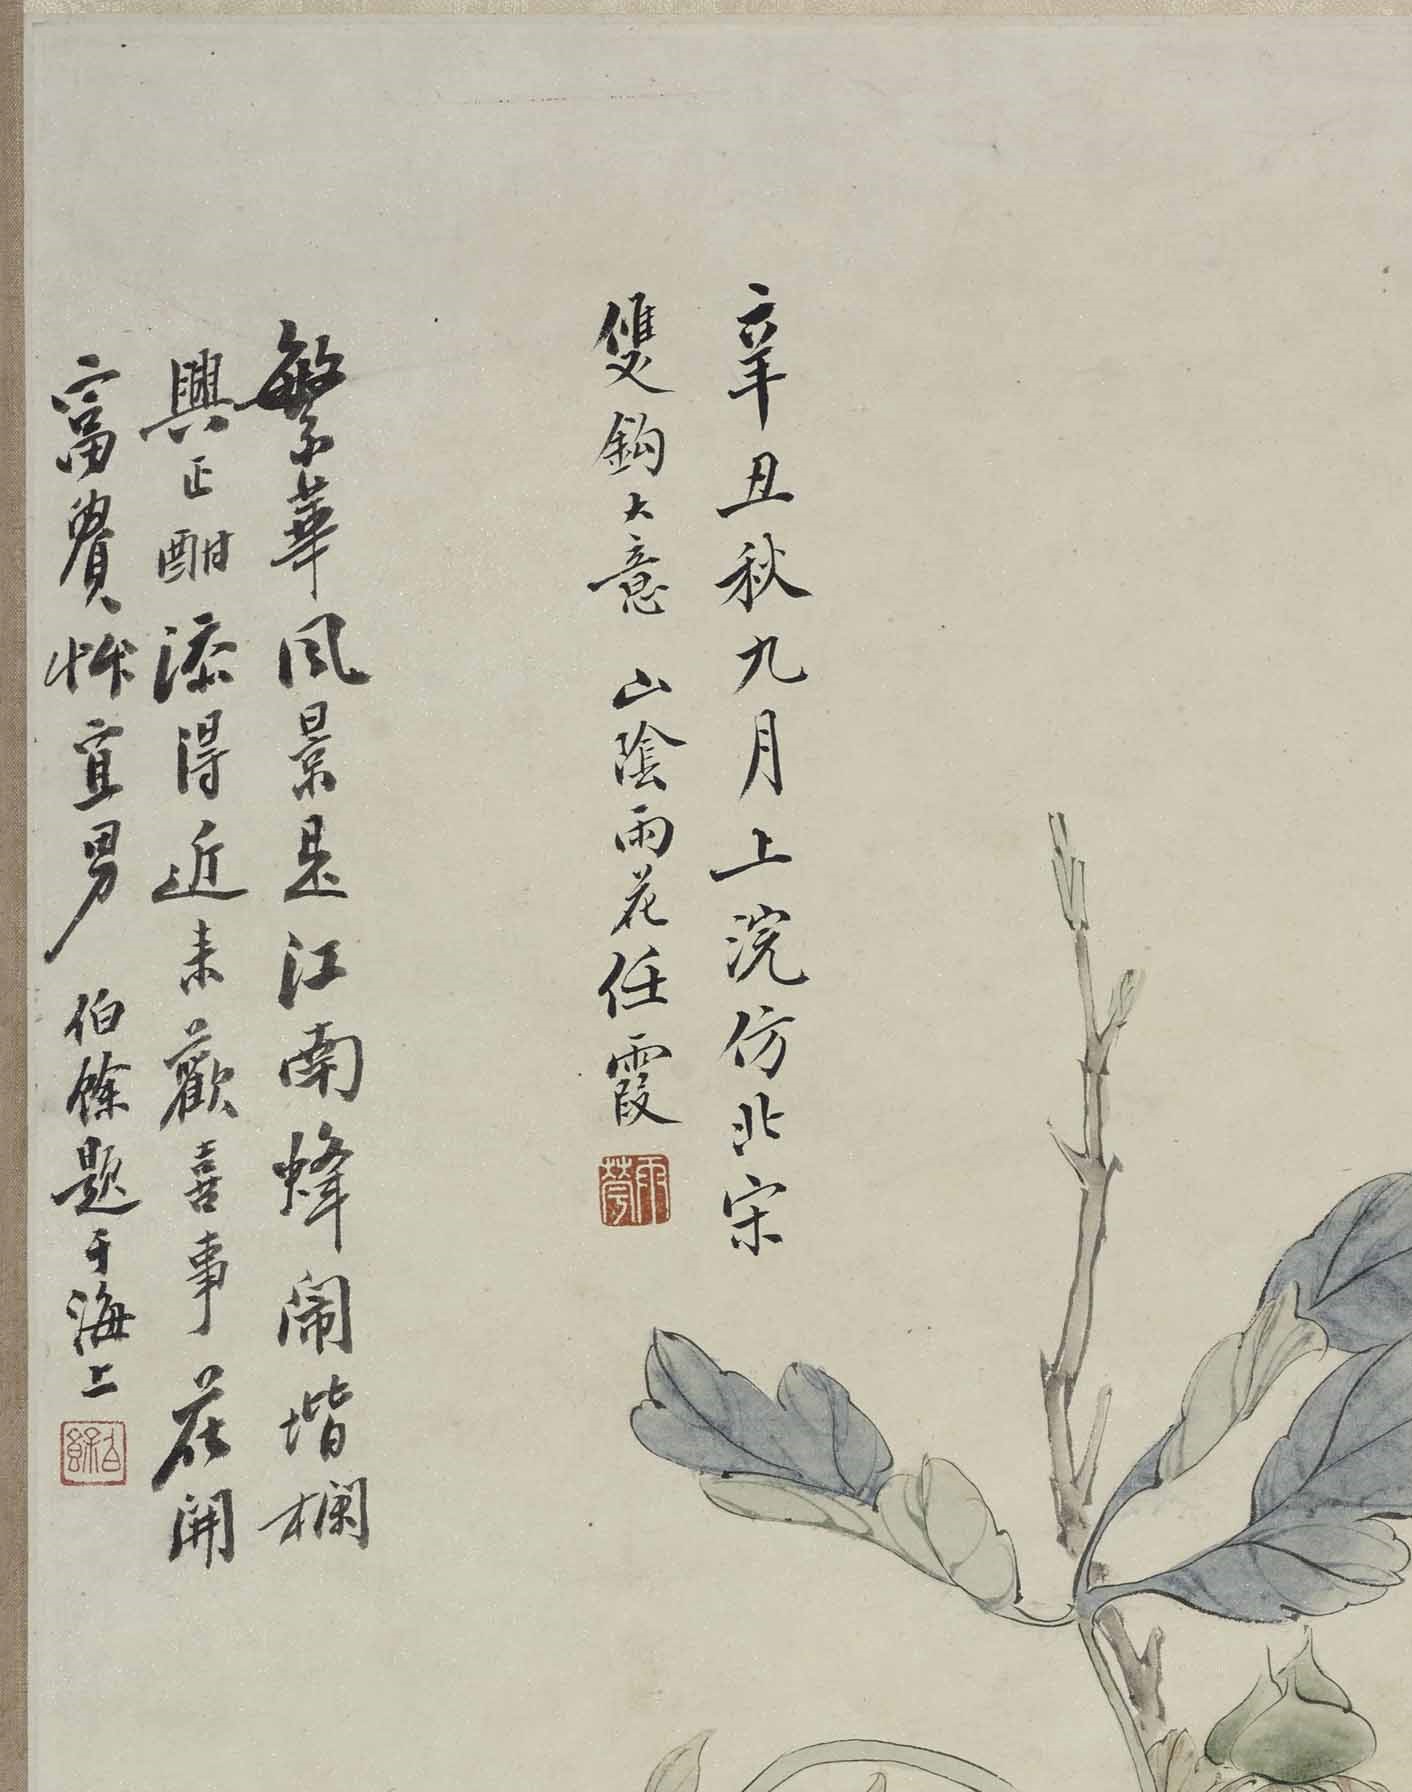 辛丑秋九月上浣仿北宋
雙鈎大意　山陰雨花任霞
雨華
繁華風景是江南蜂鬧堦欄
興正酣添得近來歡喜事花開
富貴艸宜男　伯餘題于海上
伯餘